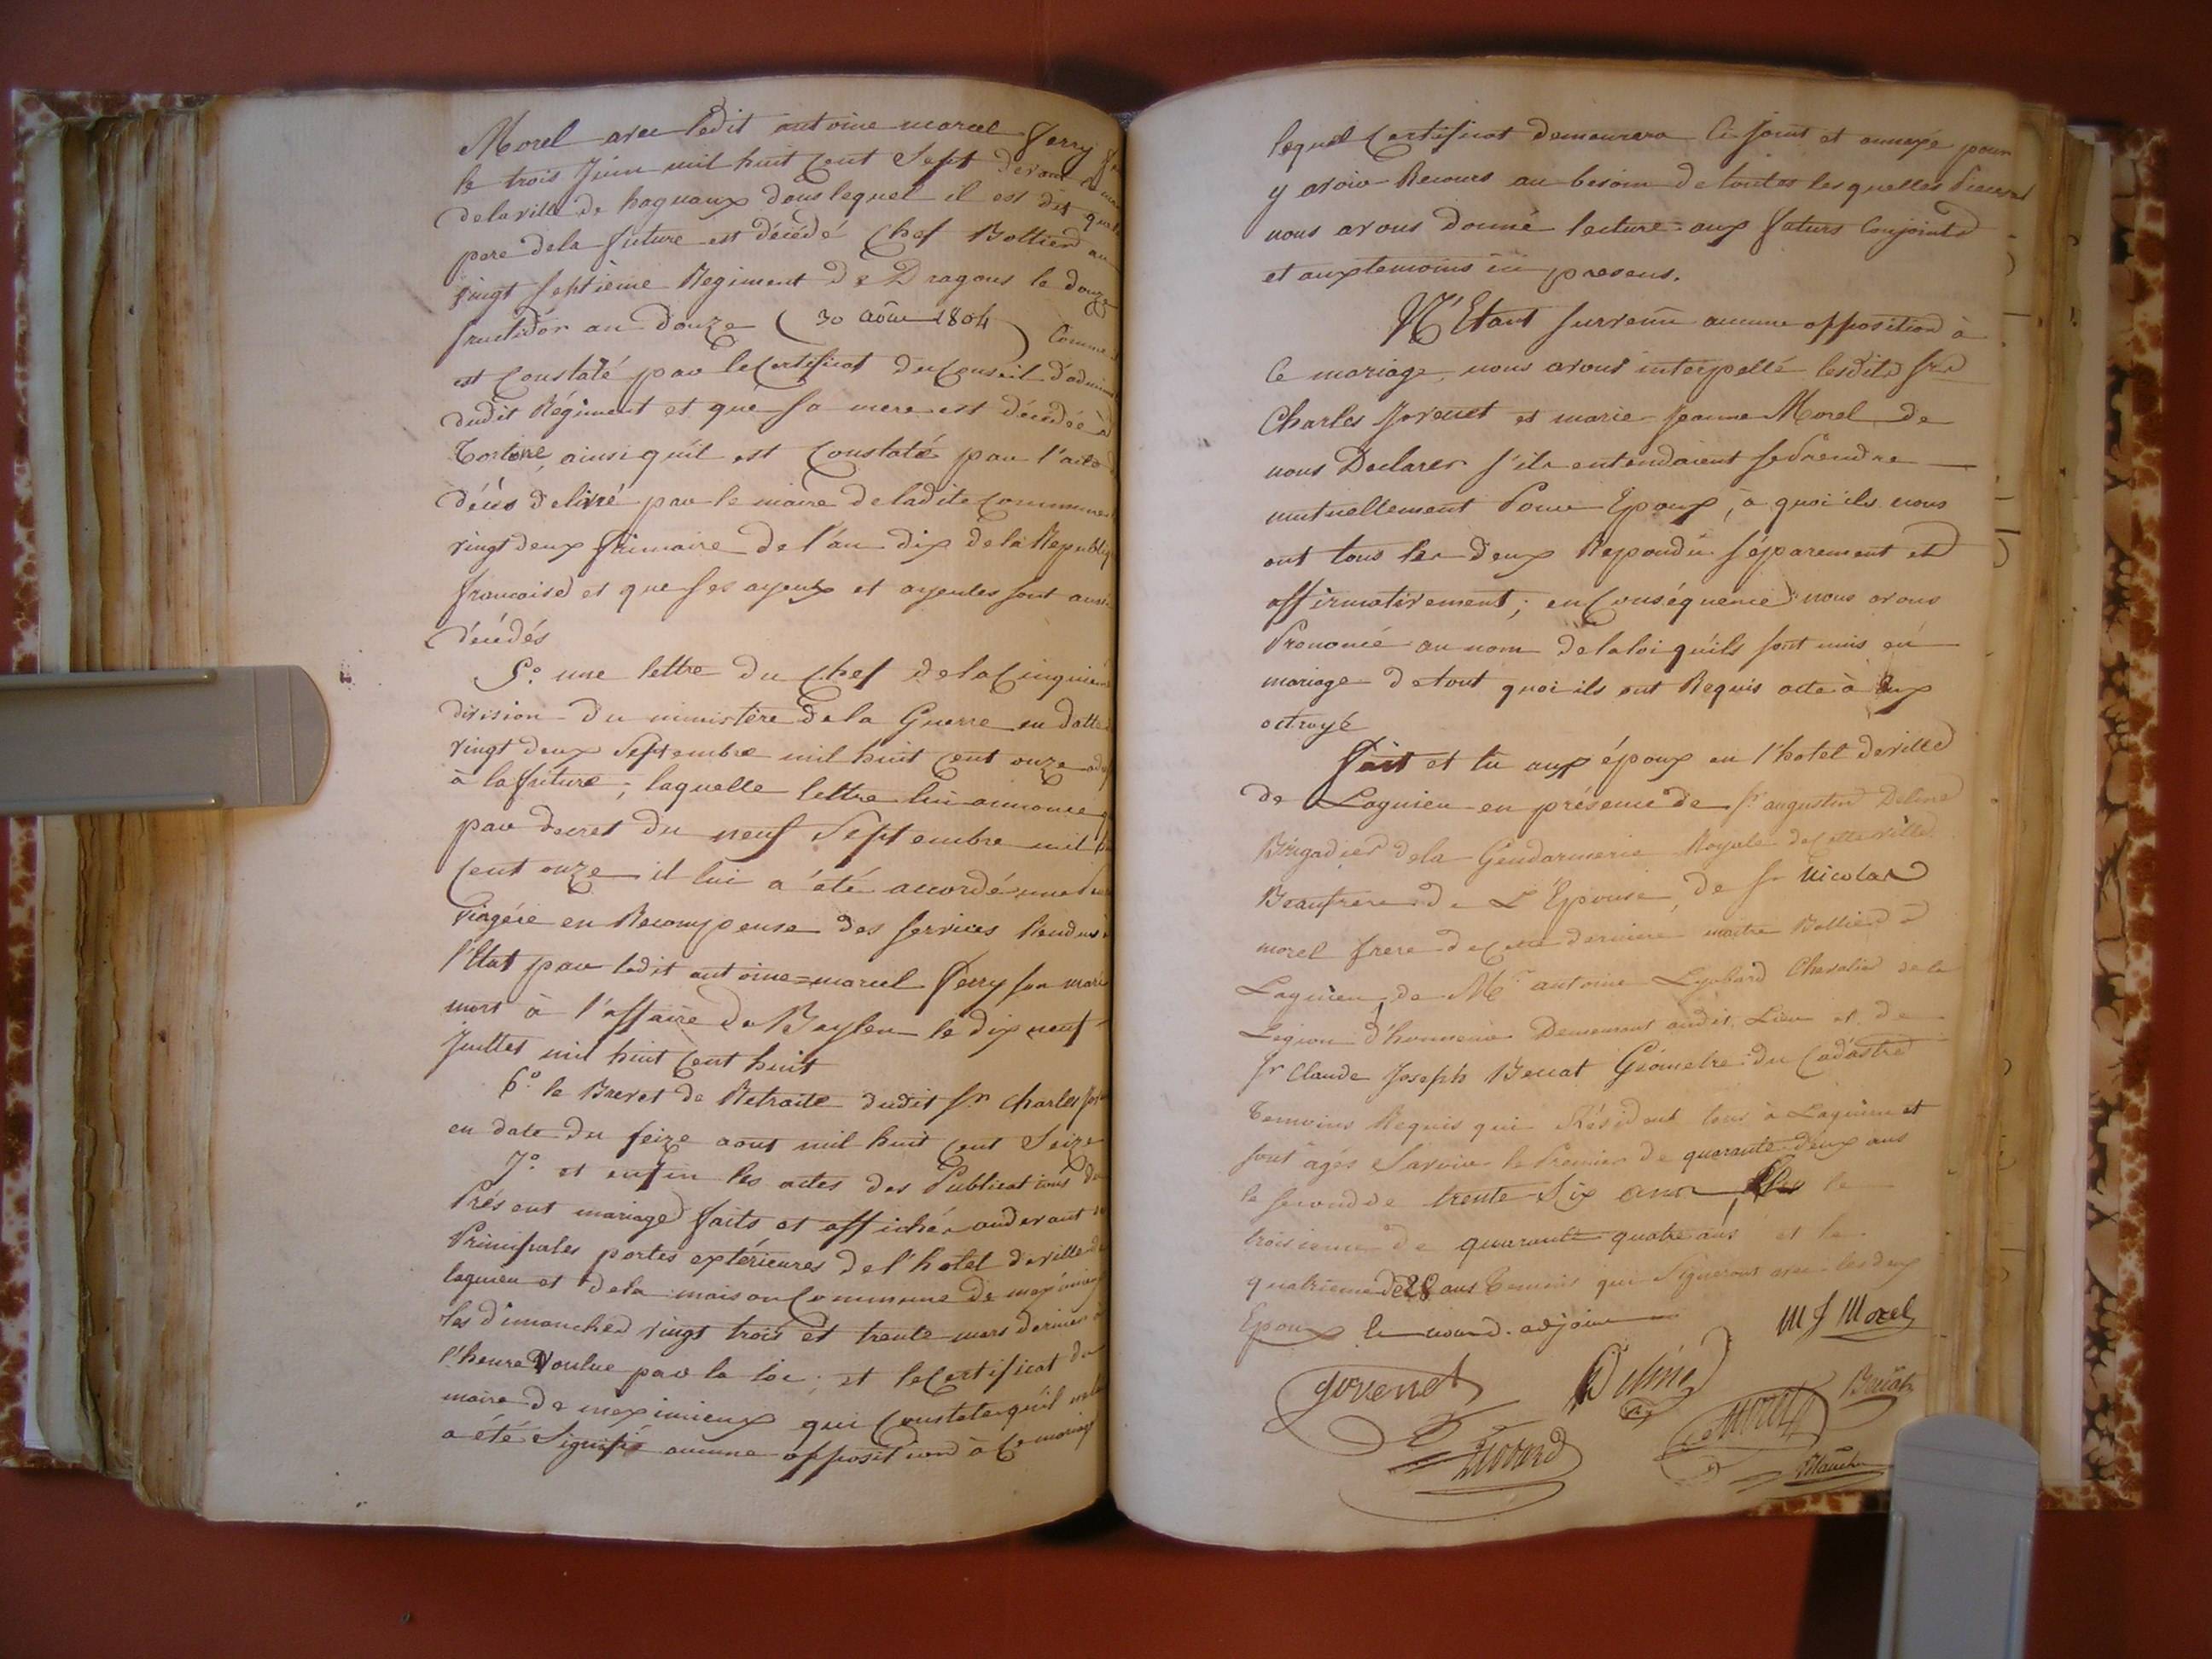 Morel avec ledit antoine marcel Ferry
le trois Juin mil huit cent Sept devant
de la ville de haguaux dans lequel il est dit que le
pere de la future est décédé Chef Bottier au
vingt septième Regiment De Dragons le douze
fructidor an Douze (30 Aôut 1804) Comme
est Constaté par le Certificat du Conseil d'admin
dudit Régiment et que sa mere est décédée à
Tortone, ainsi qu'il est Constaté par l'acte
décès delivré par le maire de ladite commune
vingt deux frimaire de l'an dix de la Republiq
francaise et que ses ayeux et ayeules sont aussi
décédés
5.° une lettre du Chef de la Cinquieme
division du ministère de la Guerre en datte
vingt deux Septembre mil huit cent onze
à la future; laquelle lettre lui annonce
par decret du neuf Septembre mil
cent onze il lui a été accordé une
viagére en Recompense des services Rendus
l'Etat par ledit antoine=marcel Ferry son mari
mort à l'affaire de Baylen le dix neuf
Juillet mil huit cent huit
6.° le Brevet de Retraite dudit Sr Charles
en date du seize aout mil huit cent Seize
7.° et enfin les actes des Publications du
Présent mariage faits et affichés audevant
Principales portes extérieures de l'hotel de ville
lagnieu et de la maison Commune de meximieux
les dimanches vingt trois et trente mars dernier à
l'heure Voulue par la loi; et le Certificat du
maire de meximieux qui Constate qu'il ne
a été Signifié aucune opposition à ce mariage
lequel Certificat demeurera Ci Joint et annexé pour
y avoir Recours au besoin de toutes les quelles Pieces
nous avons Donné lecture=aux futurs Conjoints
et aux temoins ici presens.
N'Etant survenu aucune opposition à
Ce mariage, nous avons interpellé lesdits Srs
Charles Jovenet et marie-Jeanne Morel de
nous Declarer s'ils entendaient se Prendre
mutuellement Pour Epoux, à quoi ils nous
ont tous les deux Repondu séparement et
affirmativement; en Conséquence nous avons
Prononcé au nom de la loi qu'ils sont unis en
mariage de tout quoi ils ont Requis acte à Eux
octroyé
Fait et lu aux époux en l'hotel de ville
de Lagnieu en présence de Sr augustin Deline
Brigadier de la Gendarmerie Royale de cette ville
Beaufrere de L'Epouse, de Sr Nicolas
morel frere de cette derniere maitre Bottier à
Lagnieu, de Mr antoine Lyobard Chevalier de la
Legion d'honneur Demeurant audit Lieu et de
Sr Claude Joseph Benat Géometre du Cadastre
Temoins Requis qui Résident tous à Lagnieu et
sont agés Savoir le Premier de quarante-deux ans
le second de trente Six ans, le
troisieme de quarante quatre ans et le
quatrieme de 28 ans Temoins qui Signeront avec les deux
Epoux adjoint
M J Morel
Jovenet
Deliné
Morel